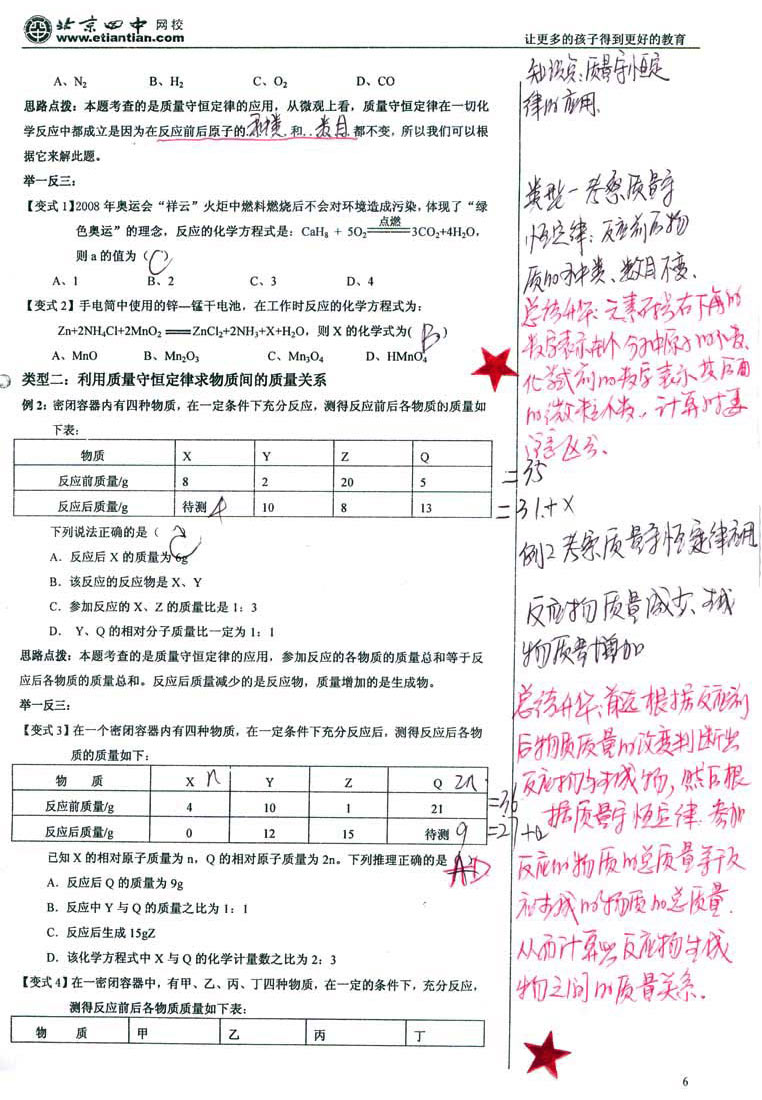 北京四中 网校
www.etiantian.com
让更多的孩子得到更好的教育
A、N₂ B、H₂ C、O₂ D、CO
思路点拨：本题考查的是质量守恒定律的应用，从微观上看，质量守恒定律在一切化
学反应中都成立是因为在反应前后原子的 种类 和 数目 都不变，所以我们可以根
据它来解此题。
举一反三：
【变式 1】2008 年奥运会“祥云”火炬中燃料燃烧后不会对环境造成污染，体现了“绿
色奥运”的理念，反应的化学方程式是：CaH₈ + 5O₂ 点燃 3CO₂+4H₂O，
则 a 的值为（ C ）
A、1 B、2 C、3 D、4
【变式 2】手电筒中使用的锌—锰干电池，在工作时反应的化学方程式为：
Zn+2NH₄Cl+2MnO₂ ══ ZnCl₂+2NH₃+X+H₂O，则 X 的化学式为( B )
A、MnO B、Mn₂O₃ C、Mn₃O₄ D、HMnO₄
类型二：利用质量守恒定律求物质间的质量关系
例 2：密闭容器内有四种物质，在一定条件下充分反应，测得反应前后各物质的质量如
下表：
物质 X Y Z Q
反应前质量/g 8 2 20 5 =35
反应后质量/g 待测 4 10 8 13 =31+X
下列说法正确的是（ C
A．反应后 X 的质量为 6g
B．该反应的反应物是 X、Y
C．参加反应的 X、Z 的质量比是 1：3
D． Y、Q 的相对分子质量比一定为 1：1
思路点拨：本题考查的是质量守恒定律的应用，参加反应的各物质的质量总和等于反
应后各物质的质量总和。反应后质量减少的是反应物，质量增加的是生成物。
举一反三：
【变式 3】在一个密闭容器内有四种物质，在一定条件下充分反应后，测得反应后各物
质的质量如下：
物 质 X n Y Z Q 2n
反应前质量/g 4 10 1 21 =36
反应后质量/g 0 12 15 待测 9 =27+a
已知 X 的相对原子质量为 n，Q 的相对原子质量为 2n。下列推理正确的是 AD
A．反应后 Q 的质量为 9g
B．反应中 Y 与 Q 的质量之比为 1：1
C．反应后生成 15gZ
D．该化学方程式中 X 与 Q 的化学计量数之比为 2：3
【变式 4】在一密闭容器中，有甲、乙、丙、丁四种物质，在一定的条件下，充分反应，
测得反应前后各物质质量如下表：
物 质 甲 乙 丙 丁
知识点：质量守恒定
律的应用.
类型一 考察质量守
恒定律：反应前后物
质的种类、数目不变.
总结升华：元素符号右下角的
数字表示 个分子中原子的个数.
化学式前的数字表示其后面
的微粒个数，计算时要
注意区分.
例2 考察质量守恒定律应用
反应物质量减少、生成
物质量增加
总结升华：首先根据反应前
后物质质量的改变判断出
反应物与生成物，然后根
据质量守恒定律. 参加
反应的物质的总质量等于反
应生成的物质的总质量.
从而计算出反应物生成
物之间的质量关系.
6